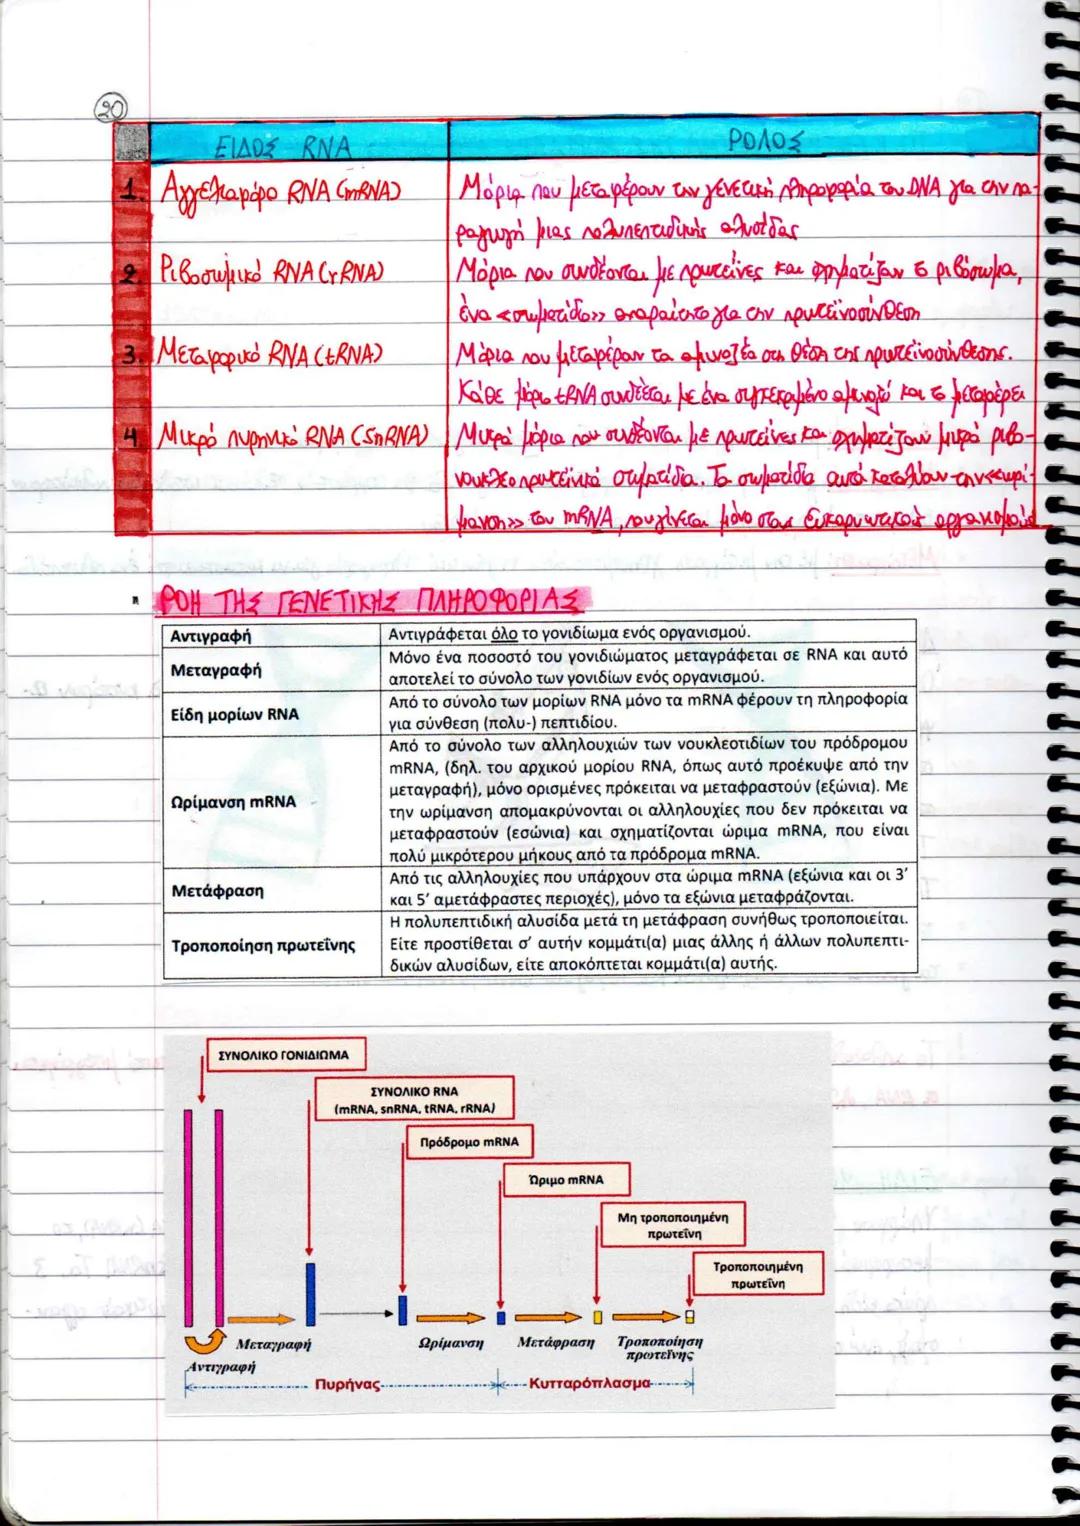 20
ΕΙΔΟΣ RNA
ΡΟΛΟΣ
1. Αγγελιαφόρο RNA (mRNA)
Μόρια που μεταφέρουν την γενετική πληροφορία του DNA για την πα-
ραγωγή μιας πολυπεπτιδικής αλυσίδας
2. Ριβοσωμικό RNA (rRNA)
Μόρια που συνδέονται με πρωτεΐνες και σχηματίζουν το ριβόσωμα,
ένα <<σωματίδιο>> απαραίτητο για την πρωτεϊνοσύνθεση
3. Μεταφορικό RNA (tRNA)
Μόρια που μεταφέρουν τα αμινοξέα στη θέση της πρωτεϊνοσύνθεσης.
Κάθε μόριο tRNA συνδέεται με ένα συγκεκριμένο αμινοξύ και το μεταφέρει
4. Μικρό πυρηνικό RNA (SnRNA)
Μικρά μόρια που συνδέονται με πρωτεΐνες και σχηματίζουν μικρά ριβο-
νουκλεοπρωτεϊνικά σωματίδια. Τα σωματίδια αυτά καταλύουν την <<ωρί-
μανση>> του mRNA, που γίνεται μόνο στους ευκαρυωτικούς οργανισμούς
ΡΟΗ ΤΗΣ ΓΕΝΕΤΙΚΗΣ ΠΛΗΡΟΦΟΡΙΑΣ
Αντιγραφή
Αντιγράφεται όλο το γονιδίωμα ενός οργανισμού.
Μεταγραφή
Μόνο ένα ποσοστό του γονιδιώματος μεταγράφεται σε RNA και αυτό
αποτελεί το σύνολο των γονιδίων ενός οργανισμού.
Είδη μορίων RNA
Από το σύνολο των μορίων RNA μόνο τα mRNA φέρουν τη πληροφορία
για σύνθεση (πολυ-) πεπτιδίου.
Ωρίμανση mRNA
Από το σύνολο των αλληλουχιών των νουκλεοτιδίων του πρόδρομου
mRNA, (δηλ. του αρχικού μορίου RNA, όπως αυτό προέκυψε από την
μεταγραφή), μόνο ορισμένες πρόκειται να μεταφραστούν (εξώνια). Με
την ωρίμανση απομακρύνονται οι αλληλουχίες που δεν πρόκειται να
μεταφραστούν (εσώνια) και σχηματίζονται ώριμα mRNA, που είναι
πολύ μικρότερου μήκους από τα πρόδρομα mRNA.
Μετάφραση
Από τις αλληλουχίες που υπάρχουν στα ώριμα mRNA (εξώνια και οι 3'
και 5' αμετάφραστες περιοχές), μόνο τα εξώνια μεταφράζονται.
Τροποποίηση πρωτεΐνης
Η πολυπεπτιδική αλυσίδα μετά τη μετάφραση συνήθως τροποποιείται.
Είτε προστίθεται σ' αυτήν κομμάτι(α) μιας άλλης ή άλλων πολυπεπτι-
δικών αλυσίδων, είτε αποκόπτεται κομμάτι(α) αυτής.
ΣΥΝΟΛΙΚΟ ΓΟΝΙΔΙΩΜΑ
ΣΥΝΟΛΙΚΟ RNA
(mRNA, snRNA, tRNA, rRNA)
Πρόδρομο mRNA
Ώριμο mRNA
Μη τροποποιημένη
πρωτεΐνη
Τροποποιημένη
πρωτεΐνη
Μεταγραφή
Ωρίμανση
Μετάφραση
Τροποποίηση
πρωτεΐνης
Αντιγραφή
Πυρήνας
Κυτταρόπλασμα